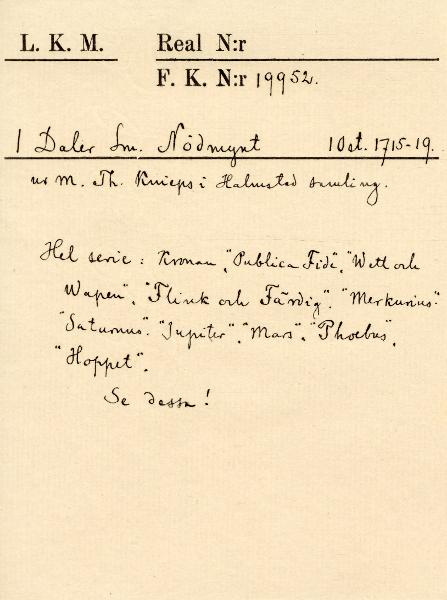 L. K. M. Real N:r
F. K. N:r 19952.
1 Daler Sm. Nödmynt 10 st. 1715-19.
ur M. Th. Knieps i Halmstad samling.
Hel serie: Kronan, "Publica Fide", "Wett och
Wapen", "Flink och Färdig". "Merkurius".
"Saturnus". "Jupiter", "Mars", "Phoebus",
"Hoppet".
Se dessa!